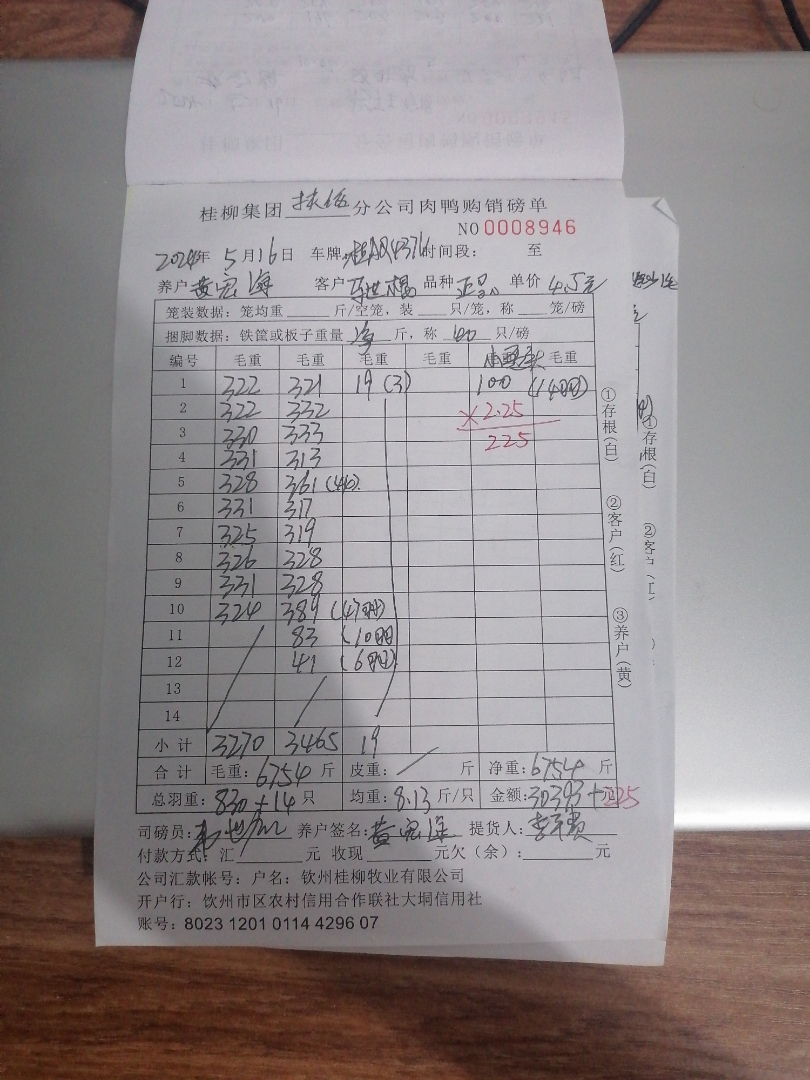 桂柳集团 分公司肉鸭购销磅单
NO 0008946
2024年 5月16日 车牌: 时间段: 至
养户 黄宏海 客户 品种 单价 4.5元
笼装数据: 笼均重 斤/空笼, 装 只/笼, 称 笼/磅
捆脚数据: 铁筐或板子重量 净 斤, 称 40 只/磅
编号 毛重 毛重 毛重 毛重 毛重
1 322 321 19 (3) 100 (14羽)
2 322 332 ×2.25
3 330 333 225
4 331 313
5 328 361
6 331 317
7 325 319
8 326 328
9 331 328
10 324 389 (47羽)
11 83 (10羽)
12 41 (6羽)
13
14
小计 3270 3465 19
合计 毛重: 6754 斤 皮重: / 斤 净重: 6754 斤
总羽重: 830+14 只 均重: 8.13 斤/只 金额: 30393+元225
司磅员: 养户签名: 黄宏海 提货人:
付款方式: 汇 元 收现 元欠(余): 元
公司汇款帐号: 户名: 钦州桂柳牧业有限公司
开户行: 钦州市区农村信用合作联社大垌信用社
账号: 8023 1201 0114 4296 07
①存根(白) ②客户(红) ③养户(黄)
①存根(白)
②客户